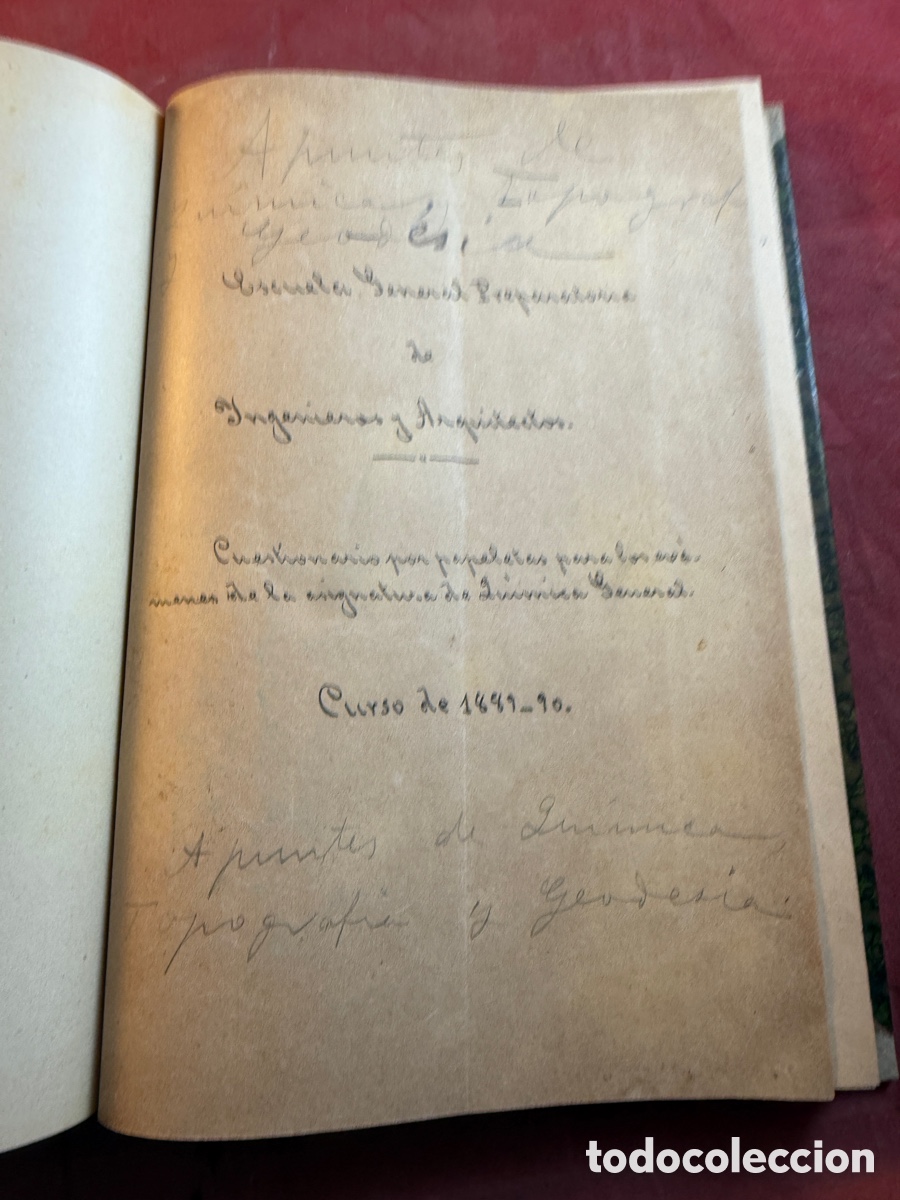 Apuntes de
Química, Topograf
Geodesia
Escuela General Preparatoria
de
Ingenieros y Arquitectos.
Cuestionario por papeletas para los exá-
menes de la asignatura de Química General.
Curso de 1889-90.
Apuntes de Química,
Topografia y Geodesia.
todocoleccion